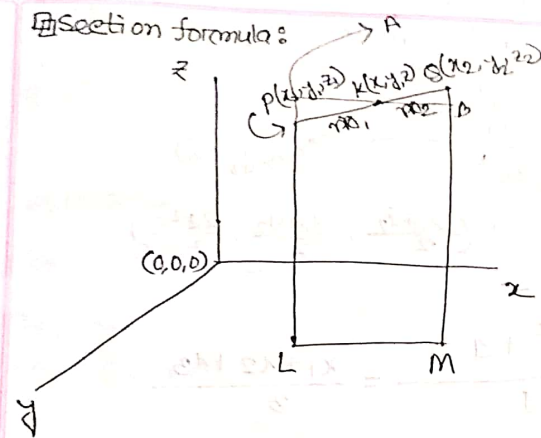 Section formula:
A
z
P(x₁,y₁,z₁) K(x,y,z) Q(x₂,y₂,z₂)
m₁ m₂ B
(0,0,0)
x
L M
y